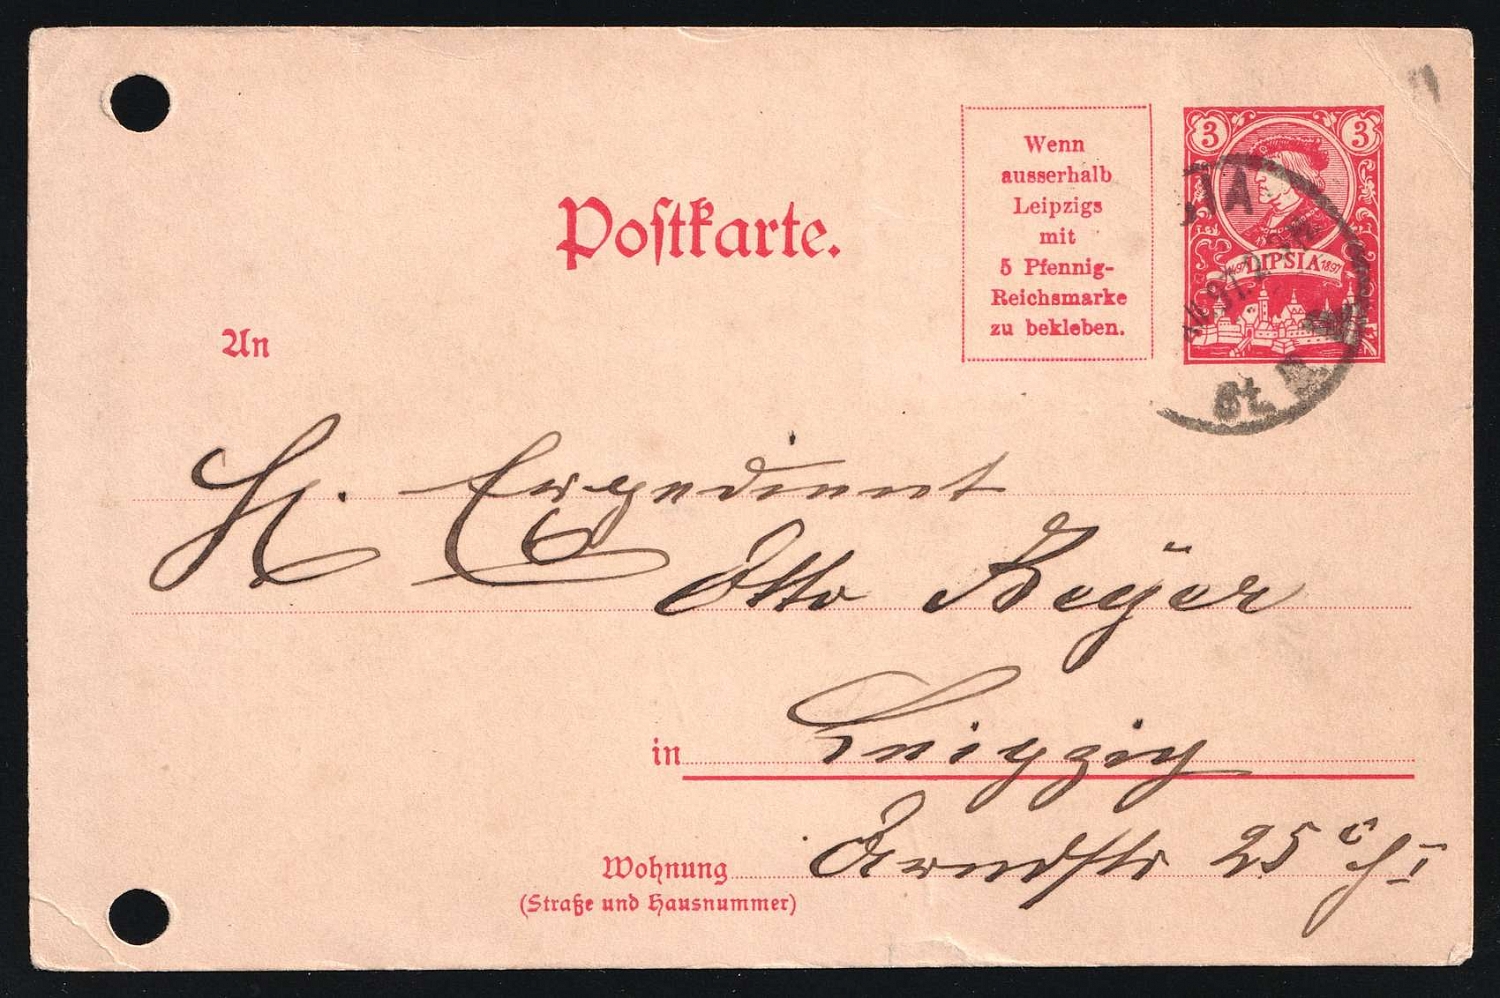 Postkarte.
Wenn
ausserhalb
Leipzigs
mit
5 Pfennig-
Reichsmarke
zu bekleben.
3 3
1497 LIPSIA 1897
An
H. Expedient
Otto Beyer
in Leipzig
Wohnung Arndtstr 25
(Straße und Hausnummer)